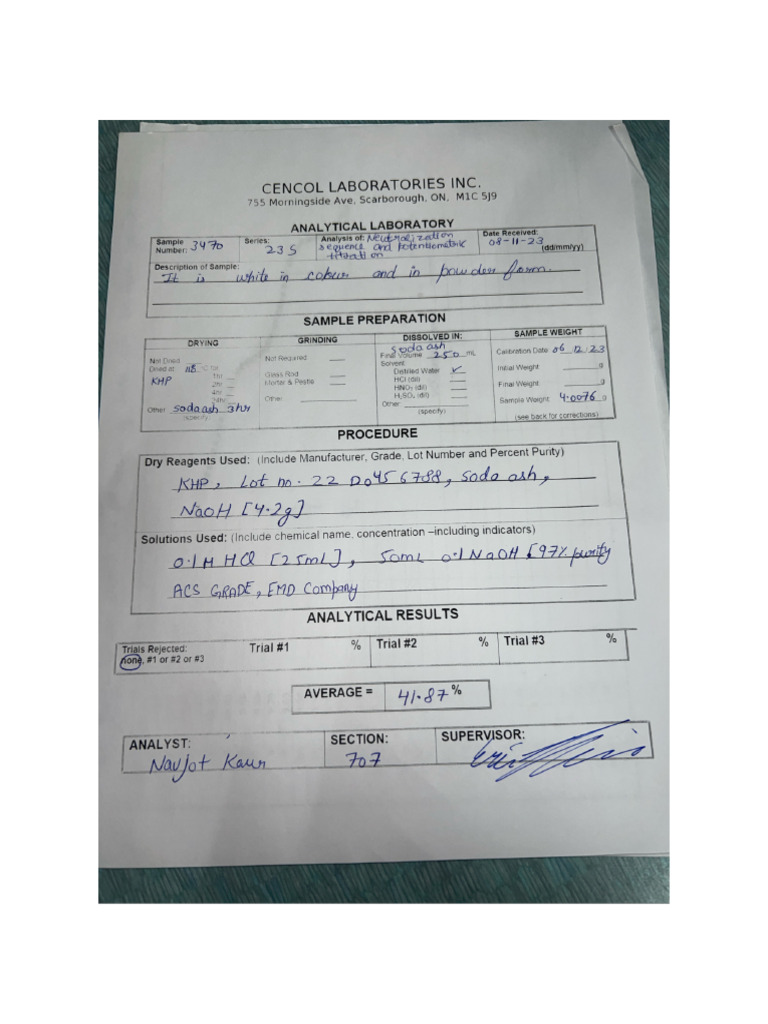 CENCOL LABORATORIES INC.
755 Morningside Ave, Scarborough, ON. M1C 5J9
ANALYTICAL LABORATORY
Sample Number: 3470 Series: 23S Analysis of: Neutralization sequence and potentiometric titration Date Received: 08-11-23 (dd/mm/yy)
Description of Sample:
It is white in colour and in powder form.
SAMPLE PREPARATION
DRYING
Not Dried
Dried at 118 °C for:
KHP 1hr
2hr
4hr
24hr
Other sodaash 3hr
(specify)
GRINDING
Not Required
Glass Rod
Mortar & Pestle
Other
DISSOLVED IN:
sodaash
Final Volume 250 mL
Solvent:
Distilled Water ✓
HCl (dil)
HNO3 (dil)
H2SO4 (dil)
Other
(specify)
SAMPLE WEIGHT
Calibration Date 06.12.23
Initial Weight g
Final Weight g
Sample Weight 4.0076 g
(see back for corrections)
PROCEDURE
Dry Reagents Used: (Include Manufacturer, Grade, Lot Number and Percent Purity)
KHP, Lot no. 22 D0456788, soda ash,
NaOH [4.2g]
Solutions Used: (Include chemical name, concentration –including indicators)
0.1M HCl [25mL], 50mL 0.1 NaOH [97% purity
ACS GRADE, EMD Company
ANALYTICAL RESULTS
Trials Rejected: Trial #1 % Trial #2 % Trial #3 %
none, #1 or #2 or #3
AVERAGE = 41.87 %
ANALYST: SECTION: SUPERVISOR:
Navjot Kaur 707